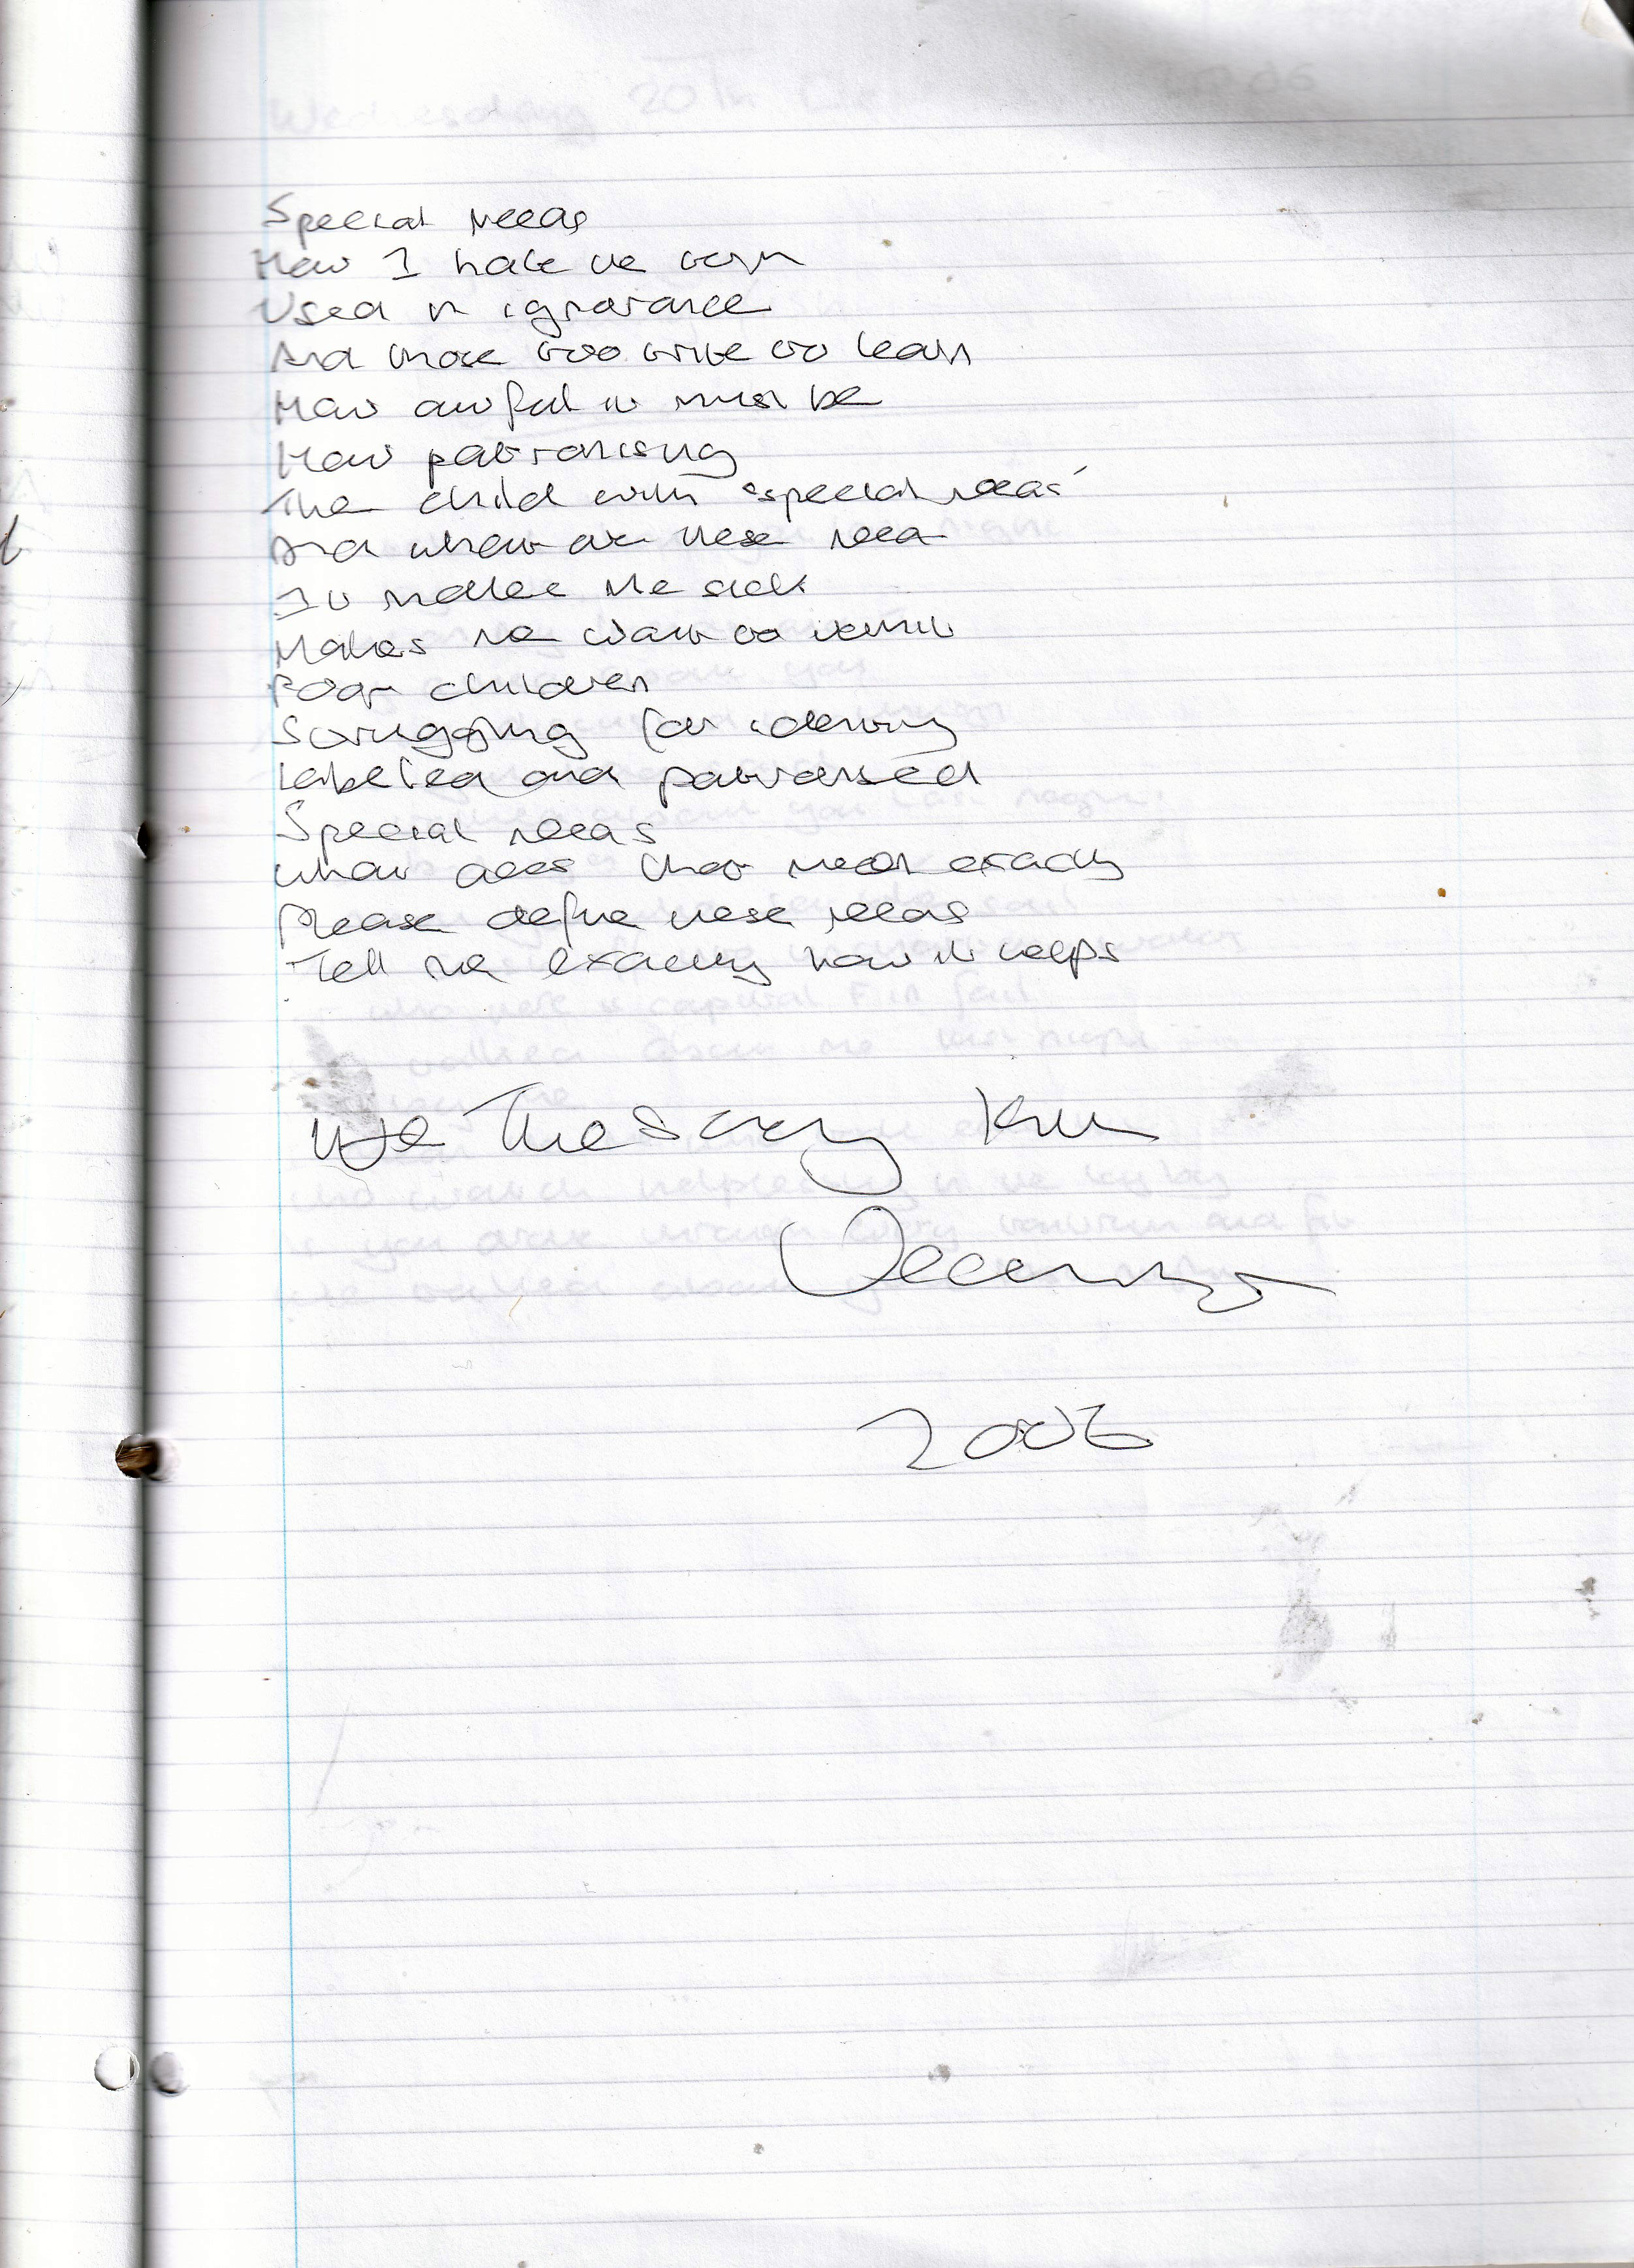 Special needs
How I hate the term
Used in ignorance
And those who
How awful it must be
How patronising
The child with "special needs"
And what are these need
It makes me sick
Makes me want to vomit
Poor children
Struggling for identity
Labelled and patronised
Special needs
What does that mean exactly
Please define these needs
Tell me exactly how it helps
December
2006